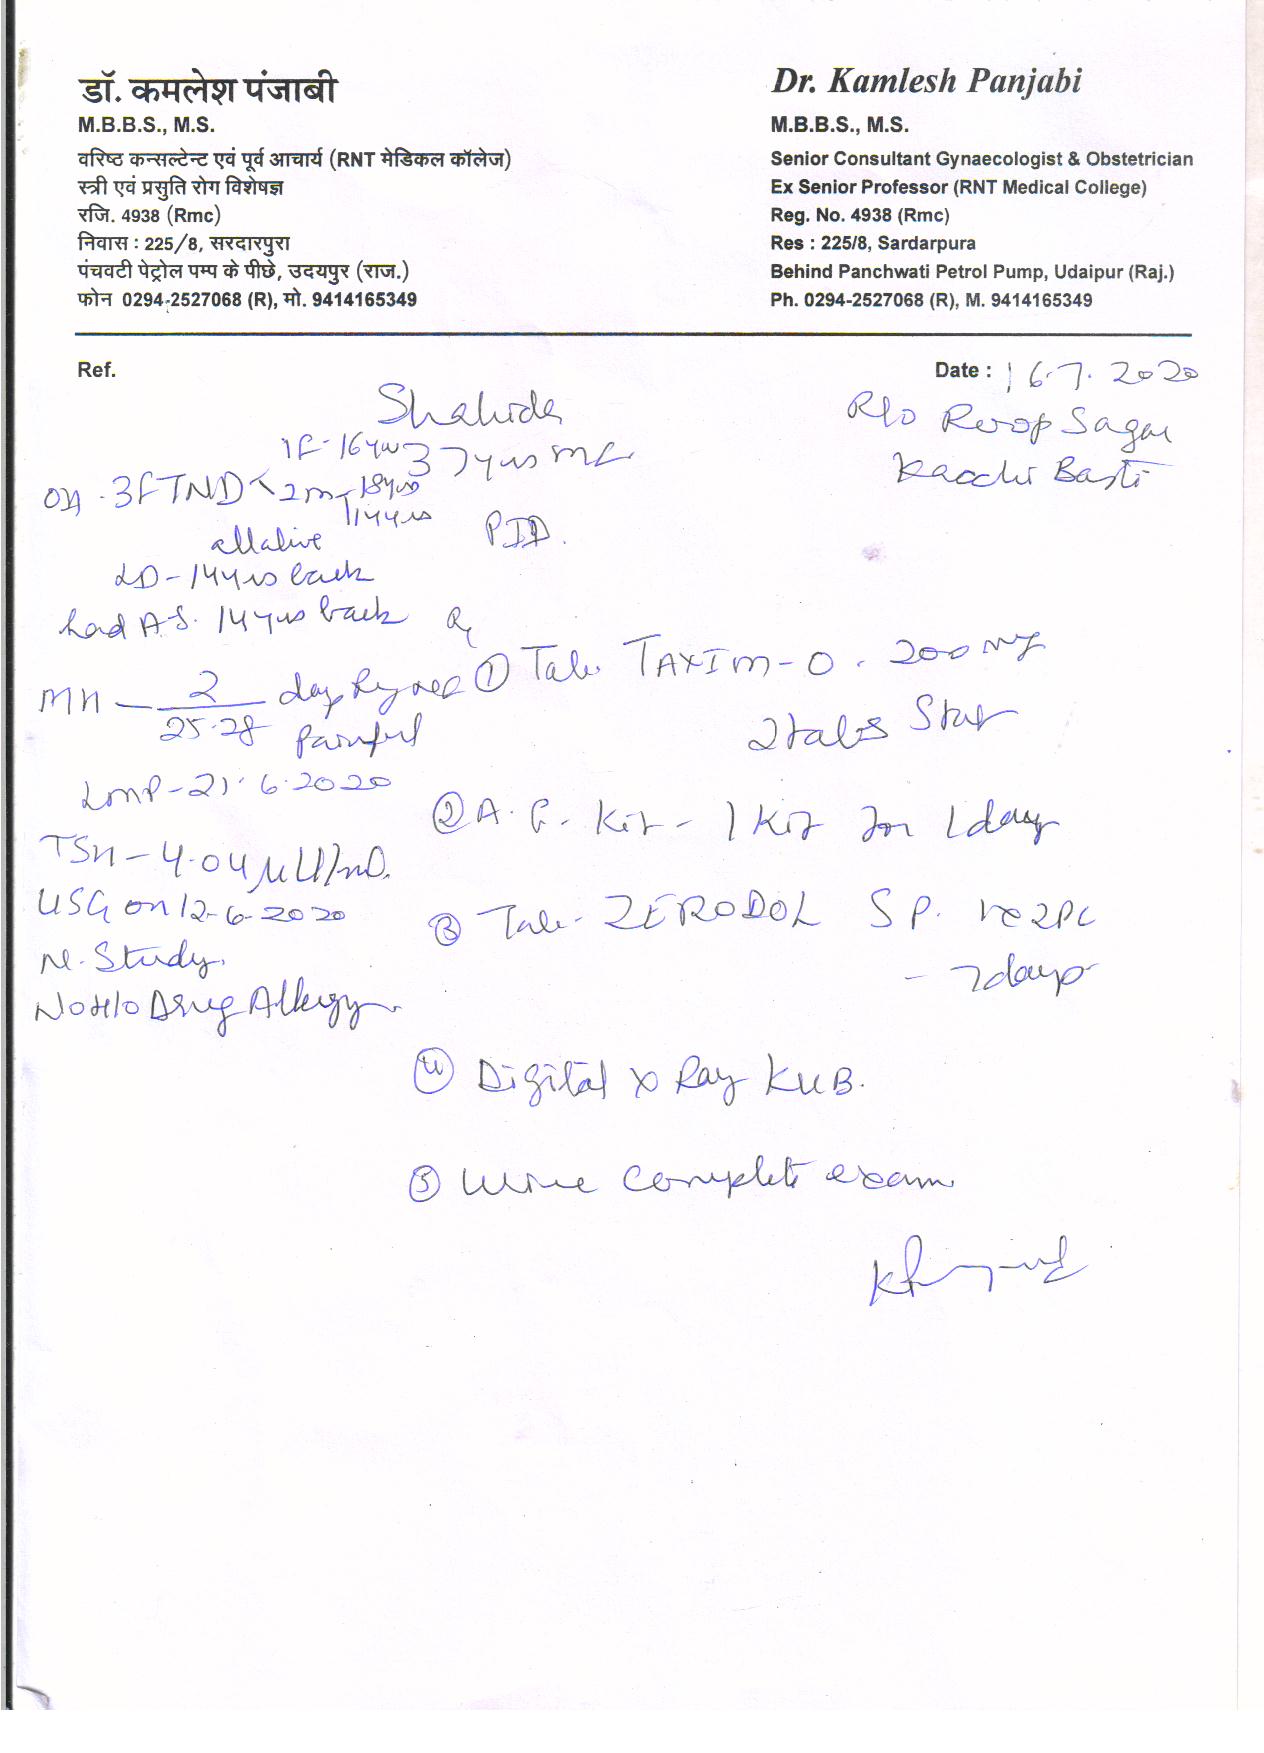 डॉ. कमलेश पंजाबी
M.B.B.S., M.S.
वरिष्ठ कन्सल्टेन्ट एवं पूर्व आचार्य (RNT मेडिकल कॉलेज)
स्त्री एवं प्रसुति रोग विशेषज्ञ
रजि. 4938 (Rmc)
निवास : 225/8, सरदारपुरा
पंचवटी पेट्रोल पम्प के पीछे, उदयपुर (राज.)
फोन 0294-2527068 (R), मो. 9414165349
Dr. Kamlesh Panjabi
M.B.B.S., M.S.
Senior Consultant Gynaecologist & Obstetrician
Ex Senior Professor (RNT Medical College)
Reg. No. 4938 (Rmc)
Res : 225/8, Sardarpura
Behind Panchwati Petrol Pump, Udaipur (Raj.)
Ph. 0294-2527068 (R), M. 9414165349
Ref.
Date : 16.7.2020
Shahida
R/o Roop Sagar
Kacchi Basti
37yrs
1F-16yrs
OH. 3FTND < 2m-18yrs
14yrs
all alive
PID.
LD-14yrs back
had A.S. 14yrs back
MH - 2/25-28 days Regular
Painful
LMP-21.6.2020
TSH-4.04µU/ml.
USG on 12-6-2020
N. Study.
No H/o Drug Allergy.
Rx
① Tab. TAXIM-O. 200mg
2tabs Stat
② A.F. Kit - 1 Kit for 1day
③ Tab. ZERODOL SP.
- 7days
④ Digital X Ray KUB.
⑤ Urine complete exam.